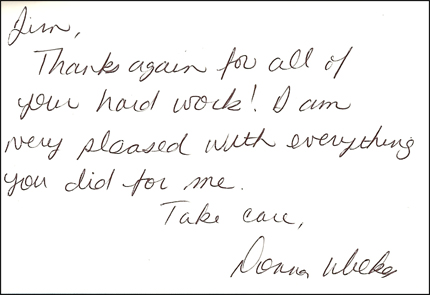 Jim,
Thanks again for all of
your hard work! I am
very pleased with everything
you did for me.
Take care,
Donna